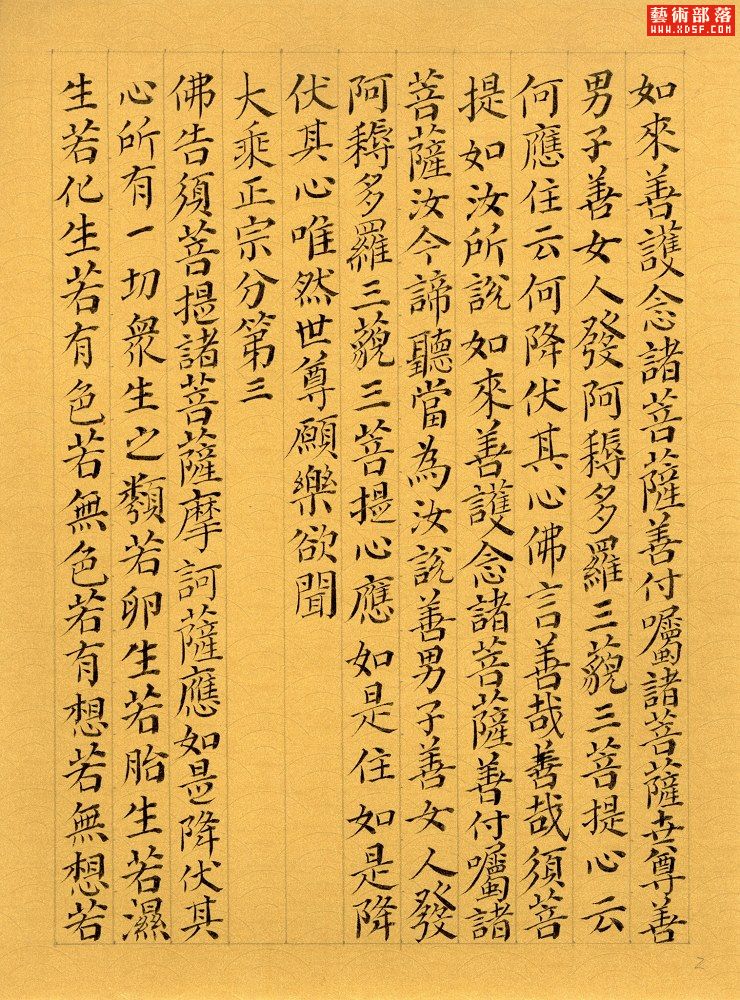 藝術部落
WWW.XDSF.COM
如來善護念諸菩薩善付囑諸菩薩世尊善
男子善女人發阿耨多羅三藐三菩提心云
何應住云何降伏其心佛言善哉善哉須菩
提如汝所說如來善護念諸菩薩善付囑諸
菩薩汝今諦聽當為汝說善男子善女人發
阿耨多羅三藐三菩提心應如是住如是降
伏其心唯然世尊願樂欲聞
大乘正宗分第三
佛告須菩提諸菩薩摩訶薩應如是降伏其
心所有一切眾生之類若卵生若胎生若濕
生若化生若有色若無色若有想若無想若
2